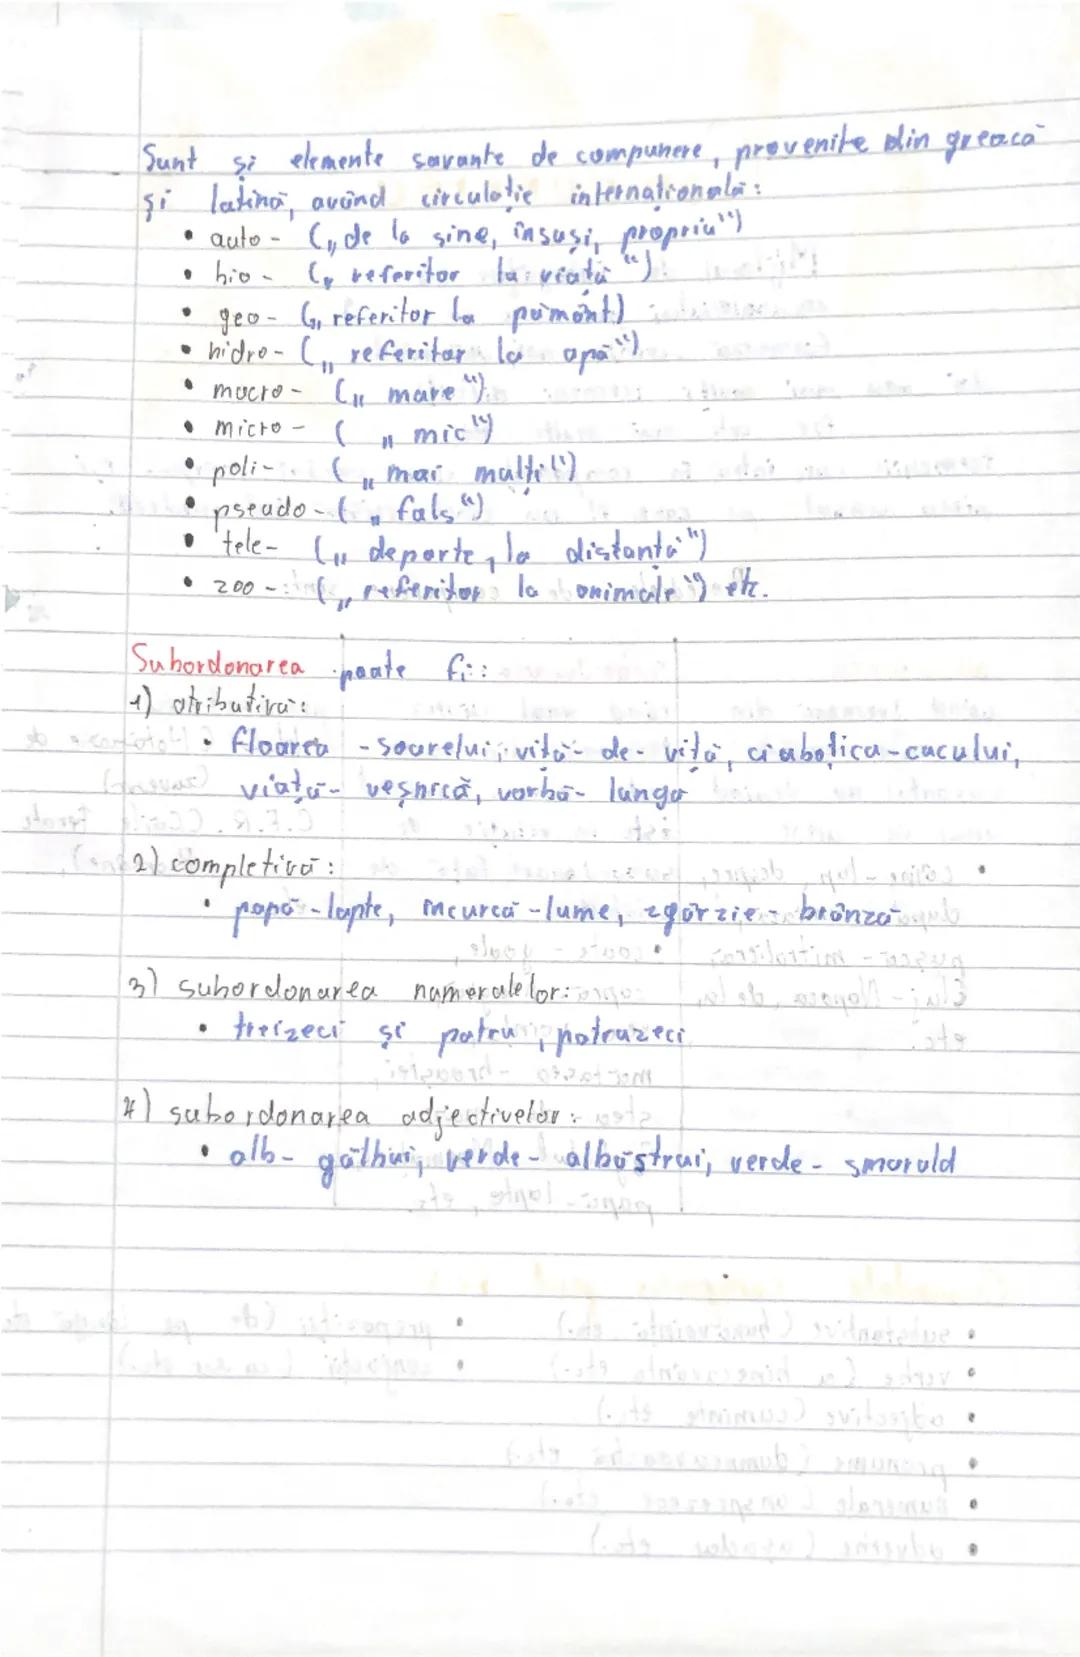 Sunt și elemente savante de compunere, provenite din greacă
și latină, având circulație internațională:
• auto- („de la sine, însuși, propriu")
• bio- („referitor la viață")
• geo- („referitor la pământ)
• hidro- („referitor la apă")
• macro- („mare")
• micro- („mic")
• poli- („mai mulți")
• pseudo- („fals")
• tele- („departe, la distanță")
• zoo-: („referitor la animale") etc.
Subordonarea poate fi:
1) atributivă:
• floarea-soarelui; viță-de-viță, ciuboțica-cucului,
viață-veșnică, vorbă-lungă
2) completivă:
• papă-lapte, încurcă-lume, zgârzie-brânză
3) subordonarea numeralelor:
• treizeci și patru, patruzeci
4) subordonarea adjectivelor:
• alb-gălbui, verde-albăstrui, verde-smarald